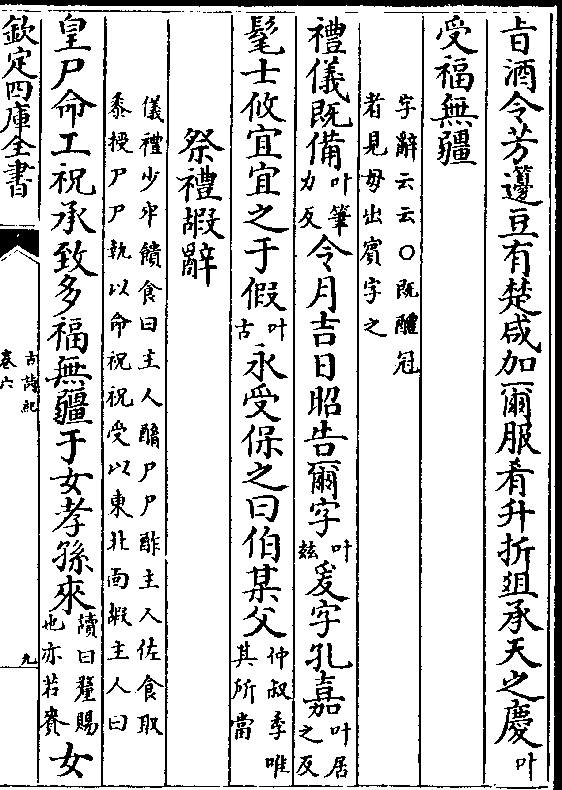 旨酒令芳籩豆有楚咸加爾服肴升折俎承天之慶叶
受福無疆
字辭云云○既醴冠
者見母出賓字之
禮儀既備叶筆力反令月吉日昭告爾字叶兹爰字孔嘉叶居之反
髦士攸宜宜之于假叶古永受保之曰伯某父仲叔季唯其所當
祭禮嘏辭
儀禮少牢饋食曰主人酳尸尸酢主人佐食取
黍授尸尸執以命祝祝受以東北面嘏主人曰
皇尸命工祝承致多福無疆于女孝孫來讀曰釐賜也亦若賚女
欽定四庫全書
古詩紀
卷六
九